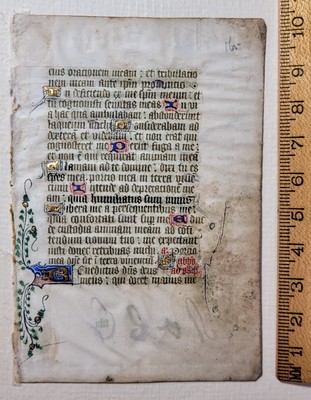 eius orationem meam: et tribulatio
nem meam ante ipm pronuntio
In deficiendo ex me spm meum: et
tu cognouisti semitas meas In ui
a hac qua ambulabam: absconderunt
laqueum michi Considerabam ad
dexteram et uidebam: et non erat qui
cognosceret me Periit fuga a me:
et non est qui requirat animam mea
Clamaui ad te domine: dixi tu es
spes mea: portio mea in terra uiuen
tium Intende ad deprecationē mea
am: quia humiliatus sum nimis
Libera me a persequentibus me:
quia confortati sunt sup me Educ
de custodia animam meam ad cōfi
tendum nomini tuo: me expectant
iusti donec retribuas michi
mea dne sit in terra uiuentium
Benedictus dns deus
meus: qui docet manus me
10
9
8
7
6
5
4
3
2
1